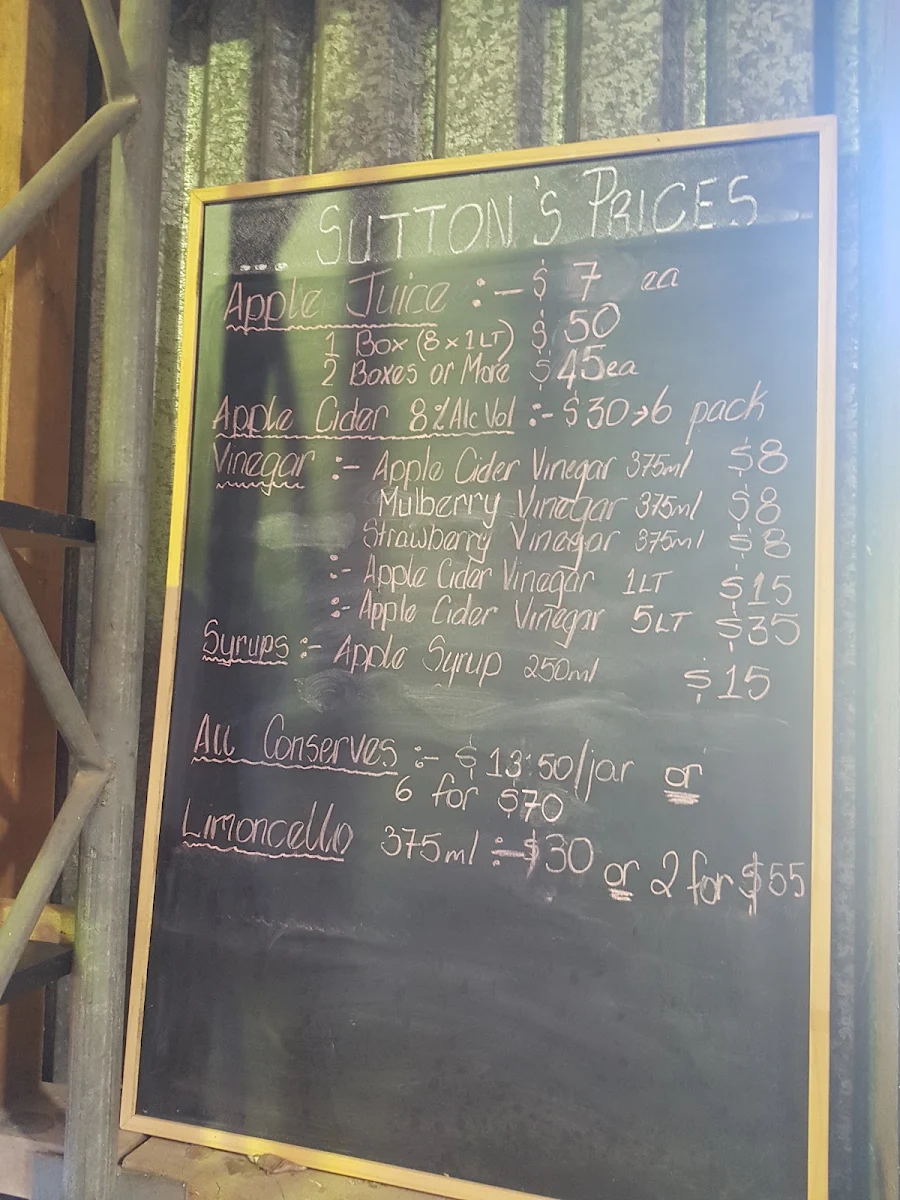 ... SUTTON'S PRICES
Apple Juice :- $7 ea
1 Box (8 x 1LT) $50
2 Boxes or More $45ea
Apple Cider 8% Alc Vol :- $30→6 pack
Vinegar :- Apple Cider Vinegar 375ml $8
Mulberry Vinegar 375ml $8
Strawberry Vinegar 375ml $8
:- Apple Cider Vinegar 1LT $15
:- Apple Cider Vinegar 5LT $35
Syrups :- Apple Syrup 250ml $15
All Conserves :- $13.50/jar or
6 for $70
Limoncello 375ml :- $30 or 2 for $55